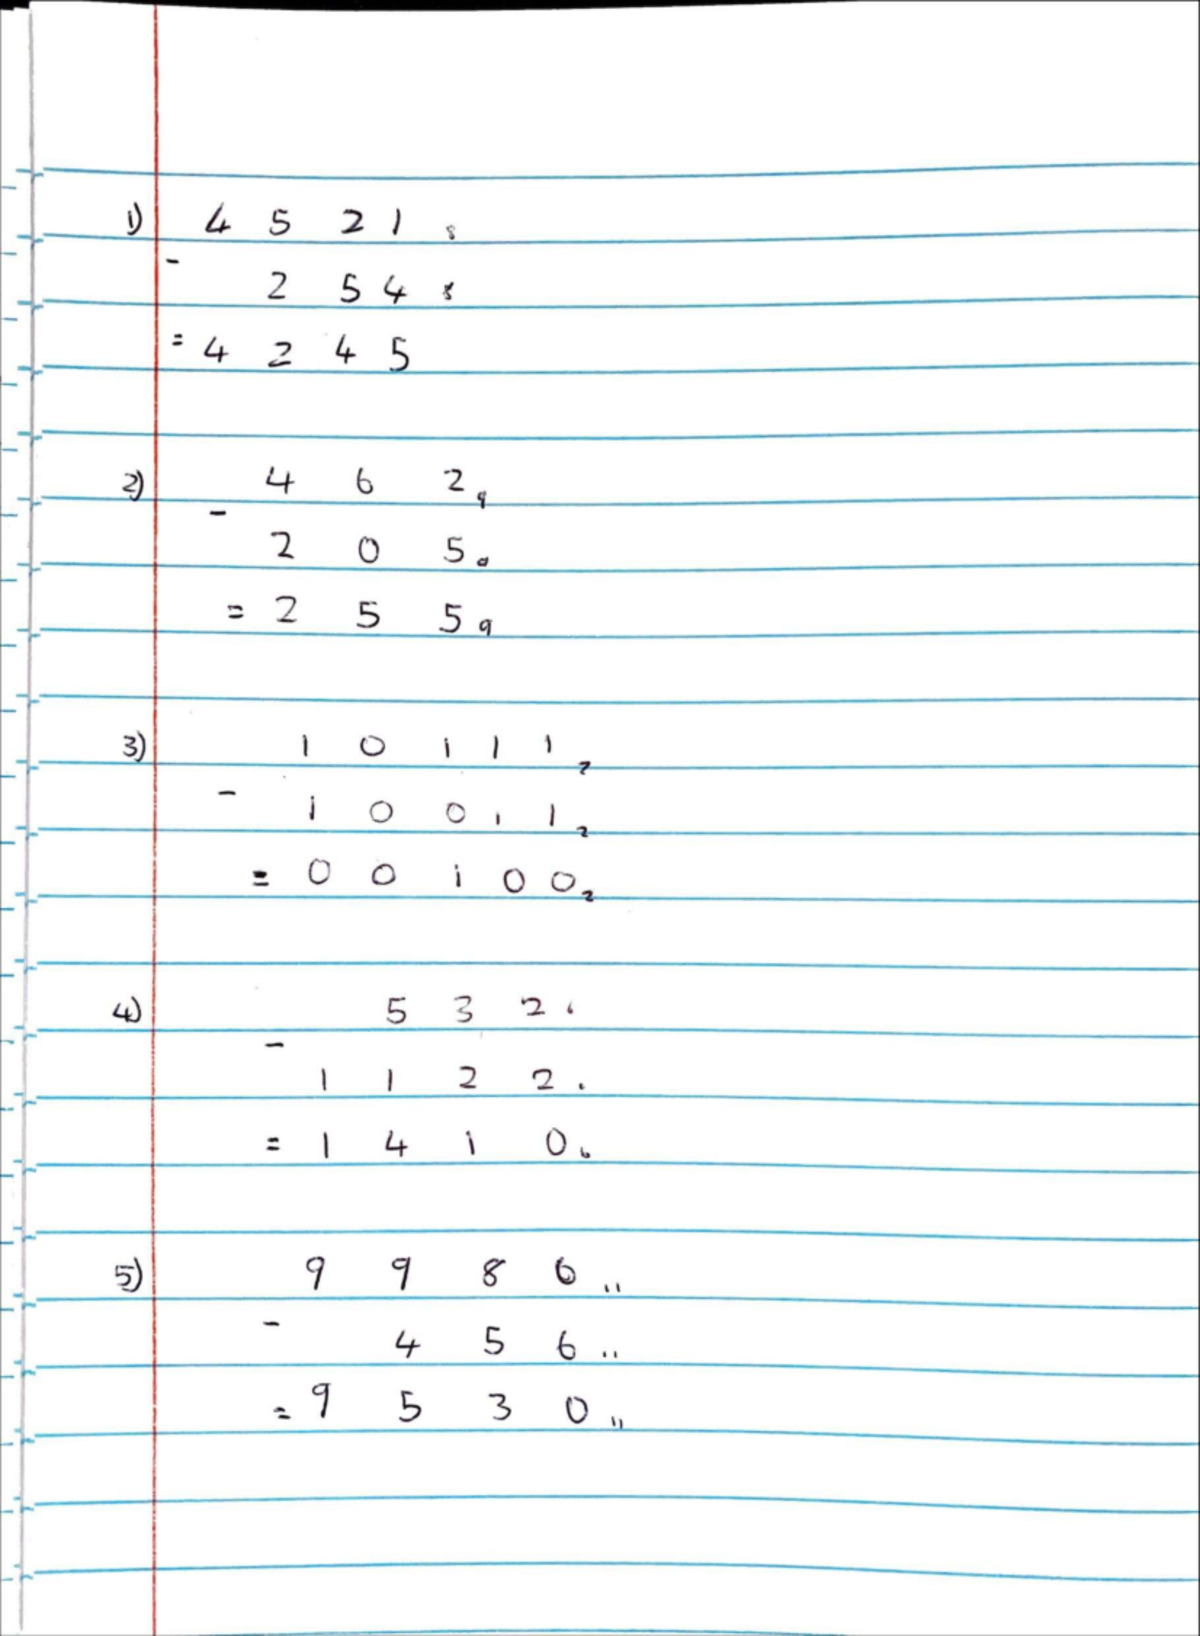 1) 4 5 2 1 ₈
- 2 5 4 ₈
= 4 2 4 5
2) 4 6 2 ₉
- 2 0 5 ₉
= 2 5 5 ₉
3) 1 0 1 1 1 ₂
- 1 0 0 1 1 ₂
= 0 0 1 0 0 ₂
4) 5 3 2 ₆
- 1 1 2 2
= 1 4 1 0 ₆
5) 9 9 8 6 ₁₁
- 4 5 6 ₁₁
= 9 5 3 0 ₁₁